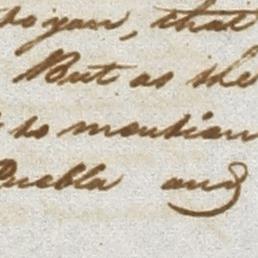 to you, that
But as the
to mention
Puebla and